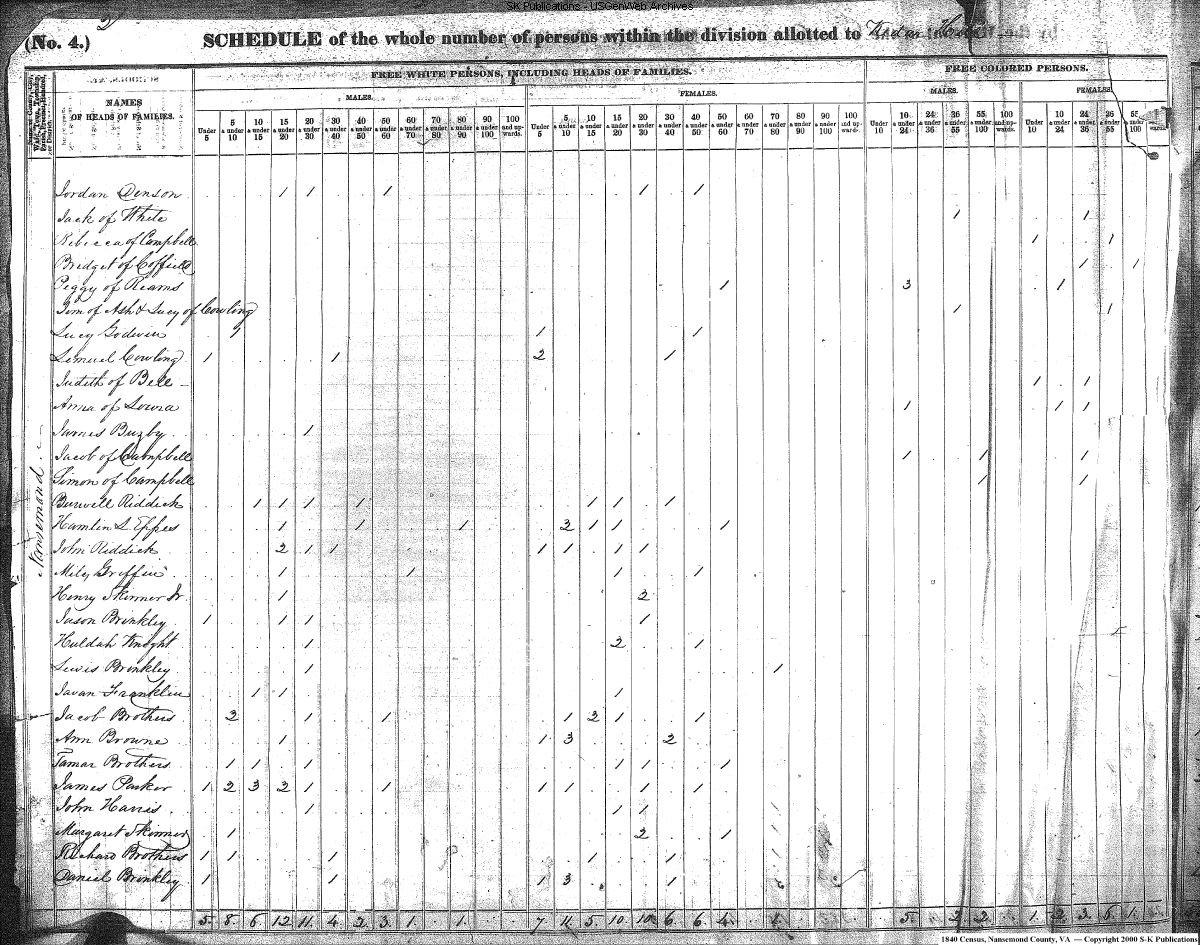 SK Publications - USGenWeb Archives
(No. 4.) SCHEDULE of the whole number of persons within the division allotted to
FREE WHITE PERSONS, INCLUDING HEADS OF FAMILIES. FREE COLORED PERSONS.
NAMES OF HEADS OF FAMILIES. MALES. FEMALES. MALES. FEMALES.
Under 5 5 & under 10 10 & under 15 15 & under 20 20 & under 30 30 & under 40 40 & under 50 50 & under 60 60 & under 70 70 & under 80 80 & under 90 90 & under 100 100 and up-wards. Under 5 5 & under 10 10 & under 15 15 & under 20 20 & under 30 30 & under 40 40 & under 50 50 & under 60 60 & under 70 70 & under 80 80 & under 90 90 & under 100 100 and up-wards. Under 10 10 & under 24 24 & under 36 36 & under 55 55 & under 100 100 and up-wards. Under 10 10 & under 24 24 & under 36 36 & under 55 55 & under 100 wards.
Nansemond
Jordan Denson 1 1 1 1 1
Jack of White 1 1
Rebecca of Campbell 1 1
Bridget of Coffield 1 1
Peggy of Reams 1 3 1
Tom of Ash & Lucy of Cowling 1 1
Lucy Godwin 1 1 1
Lemuel Cowling 1 1 2 1
Judith of Bell 1 1
Anna of 1 1 1
James Buzby 1
Jacob of Campbell 1 1 1
Simon of Campbell 1 1
Burwell Riddick 1 1 1 1 1 1 1
Hamlin L. Eppes 1 1 1 3 1 1 1
John Riddick 2 1 1 1 1 1 1
Miley Griffin 1 1 1 1
Henry Skinner Jr. 1 2
Jason Brinkley 1 1 1 1
Huldah Knight 1 2 1
Lewis Brinkley 1 1
Javan Franklin 1 1 1
Jacob Brothers 2 1 1 1 2 1 1
Ann Browne 1 1 3 2
Tamar Brothers 1 1 1 1 1 1
James Parker 1 2 3 2 1 1 1 1 1 1
John Harris 1 1 1
Margaret Skinner 1 2 1
Richard Brothers 1 1 1 1 1
Daniel Brinkley 1 1 1 3 1
5 8 6 12 11 4 2 3 1 1 7 11 5 10 10 6 6 4 5 2 2 1 2 3 1
1840 Census, Nansemond County, VA — Copyright 2000 S-K Publications